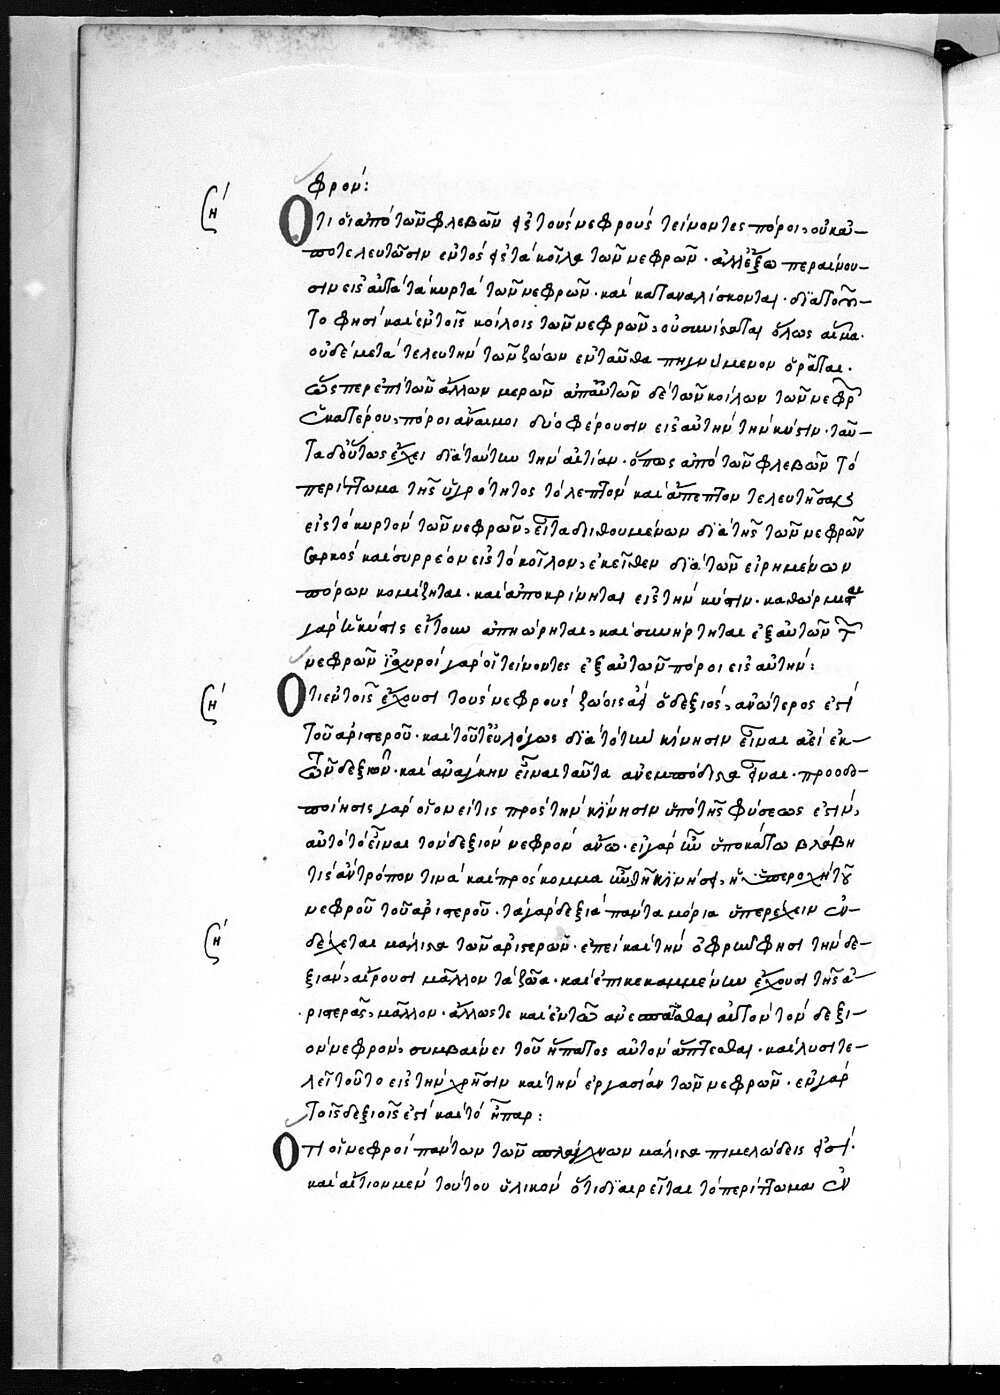 φρον:
Ὅτι οἱ ἀπὸ τῶν φλεβῶν εἰς τοὺς νεφροὺς τείνοντες πόροι, οὐκ ἀ-
ποτελευτῶσιν ἐντὸς εἰς τὰ κοῖλα τῶν νεφρῶν. ἀλλ' ἔξω περαίνου-
σιν εἰς αὐτὰ τὰ κυρτὰ τῶν νεφρῶν. καὶ καταναλίσκονται. διατοῦ-
το φησὶ καὶ ἐν τοῖς κοίλοις τῶν νεφρῶν, οὐ συνίσταται ὅλως αἷμα.
οὐδὲ μετὰ τελευτὴν τῶν ζώων ἐνταῦθα πηγνύμενον ὁρᾶται.
ὥσπερ ἐπὶ τῶν ἄλλων μερῶν ἀπ' αὐτῶν δὲ τῶν κοίλων τῶν νεφρ
ἑκατέρου, πόροι ἄναιμοι δύο φέρουσιν εἰς αὐτὴν τὴν κύστιν. ταῦ-
τα δ' οὕτως ἔχει διὰ ταύτην τὴν αἰτίαν. ὅπως ἀπὸ τῶν φλεβῶν τὸ
περίττωμα τῆς ὑγρότητος τὸ λεπτὸν καὶ ἄπεπτον τελευτῆσαν
εἰς τὸ κυρτὸν τῶν νεφρῶν, εἶτα διηθουμένων διὰ τῆς τῶν νεφρῶν
σαρκὸς καὶ συρρέον εἰς τὸ κοῖλον, ἐκεῖθεν διὰ τῶν εἰρημένων
πόρων κομίζηται. καὶ ἀποκρίνηται εἰς τὴν κύστιν. καθώρμισται
γὰρ ἡ κύστις εἴτουν ἀπηώρηται, καὶ συνήρτηται ἐξ αὐτῶν τῶν
νεφρῶν ἰσχυροὶ γὰρ οἱ τείνοντες ἐξ αὐτῶν πόροι εἰς αὐτήν:
Ὅτι ἐν τοῖς ἔχουσι τοὺς νεφροὺς ζώοις ἀεὶ ὁ δεξιὸς, ἀνώτερος ἐστὶ
τοῦ ἀριστεροῦ. καὶ τοῦτ' εὐλόγως διὰ τὸ τὴν κίνησιν εἶναι ἀεὶ ἐκ
τῶν δεξιῶν. καὶ ἀνάγκην εἶναι ταῦτα ἀνεμπόδιστα εἶναι. προοδο-
ποίησις γὰρ οἷον εἴ τις πρὸς τὴν κίνησιν ὑπὸ τῆς φύσεως ἐστὶν,
αὐτὸ τὸ εἶναι τὸν δεξιὸν νεφρὸν ἄνω. εἰ γὰρ ἦν ὑποκάτω βλάβη
τις ἂν τρόπον τινὰ καὶ πρόσκομμα ἦν τῇ κινήσει, ἡ ὑπεροχὴ τοῦ
νεφροῦ τοῦ ἀριστεροῦ. τὰ γὰρ δεξιὰ πάντα μόρια ὑπερέχειν ἐν-
δέχεται μάλιστα τῶν ἀριστερῶν. ἐπεὶ καὶ τὴν ὀφρῦν φησὶ τὴν δε-
ξιὰν, αἴρουσι μᾶλλον τὰ ζῶα. καὶ ἐπικεκαμμένην ἔχουσι τῆς ἀ-
ριστερᾶς, μᾶλλον. ἄλλως τε καὶ ἐν τῶ ἀνεσπᾶσθαι αὐτὸν τὸν δεξι-
ὸν νεφρὸν, συμβαίνει τοῦ ἥπατος αὐτὸν ἅπτεσθαι. καὶ λυσιτε-
λεῖ τοῦτο εἰς τὴν χρῆσιν καὶ τὴν ἐργασίαν τῶν νεφρῶν. ἐν γὰρ
τοῖς δεξιοῖς ἐστὶ καὶ τὸ ἧπαρ:
Ὅτι οἱ νεφροὶ πάντων τῶν σπλάγχνων μάλιστα πιμελώδεις εἰσί.
καὶ αἴτιον μὲν τούτου ὑλικὸν ὅτι διαιρεῖται τὸ περίττωμα ἐν